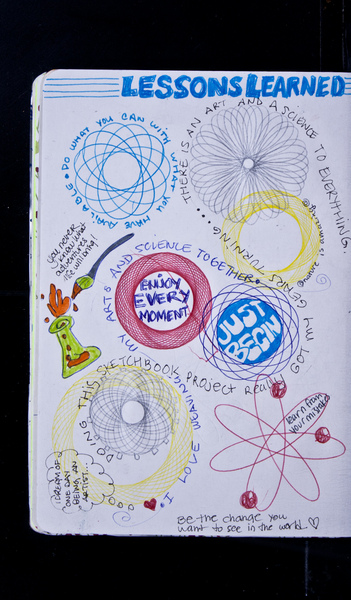 LESSONS LEARNED
DO WHAT YOU CAN WITH WHAT YOU HAVE AVAILABLE •
...THERE IS AN ART AND A SCIENCE TO EVERYTHING.
you never
know what
adventures
life will bring!
• I LOVE WEAVING MY ARTS AND SCIENCE TOGETHER •
ENJOY
EVERY
MOMENT
JUST
BEGIN
DOING THIS SKETCHBOOK PROJECT REALLY GOT MY GEARS TURNING....
learn from
your mistakes
I DREAM OF
ONE DAY
BEING AN
ARTIST...
Be the change you
want to see in the world...